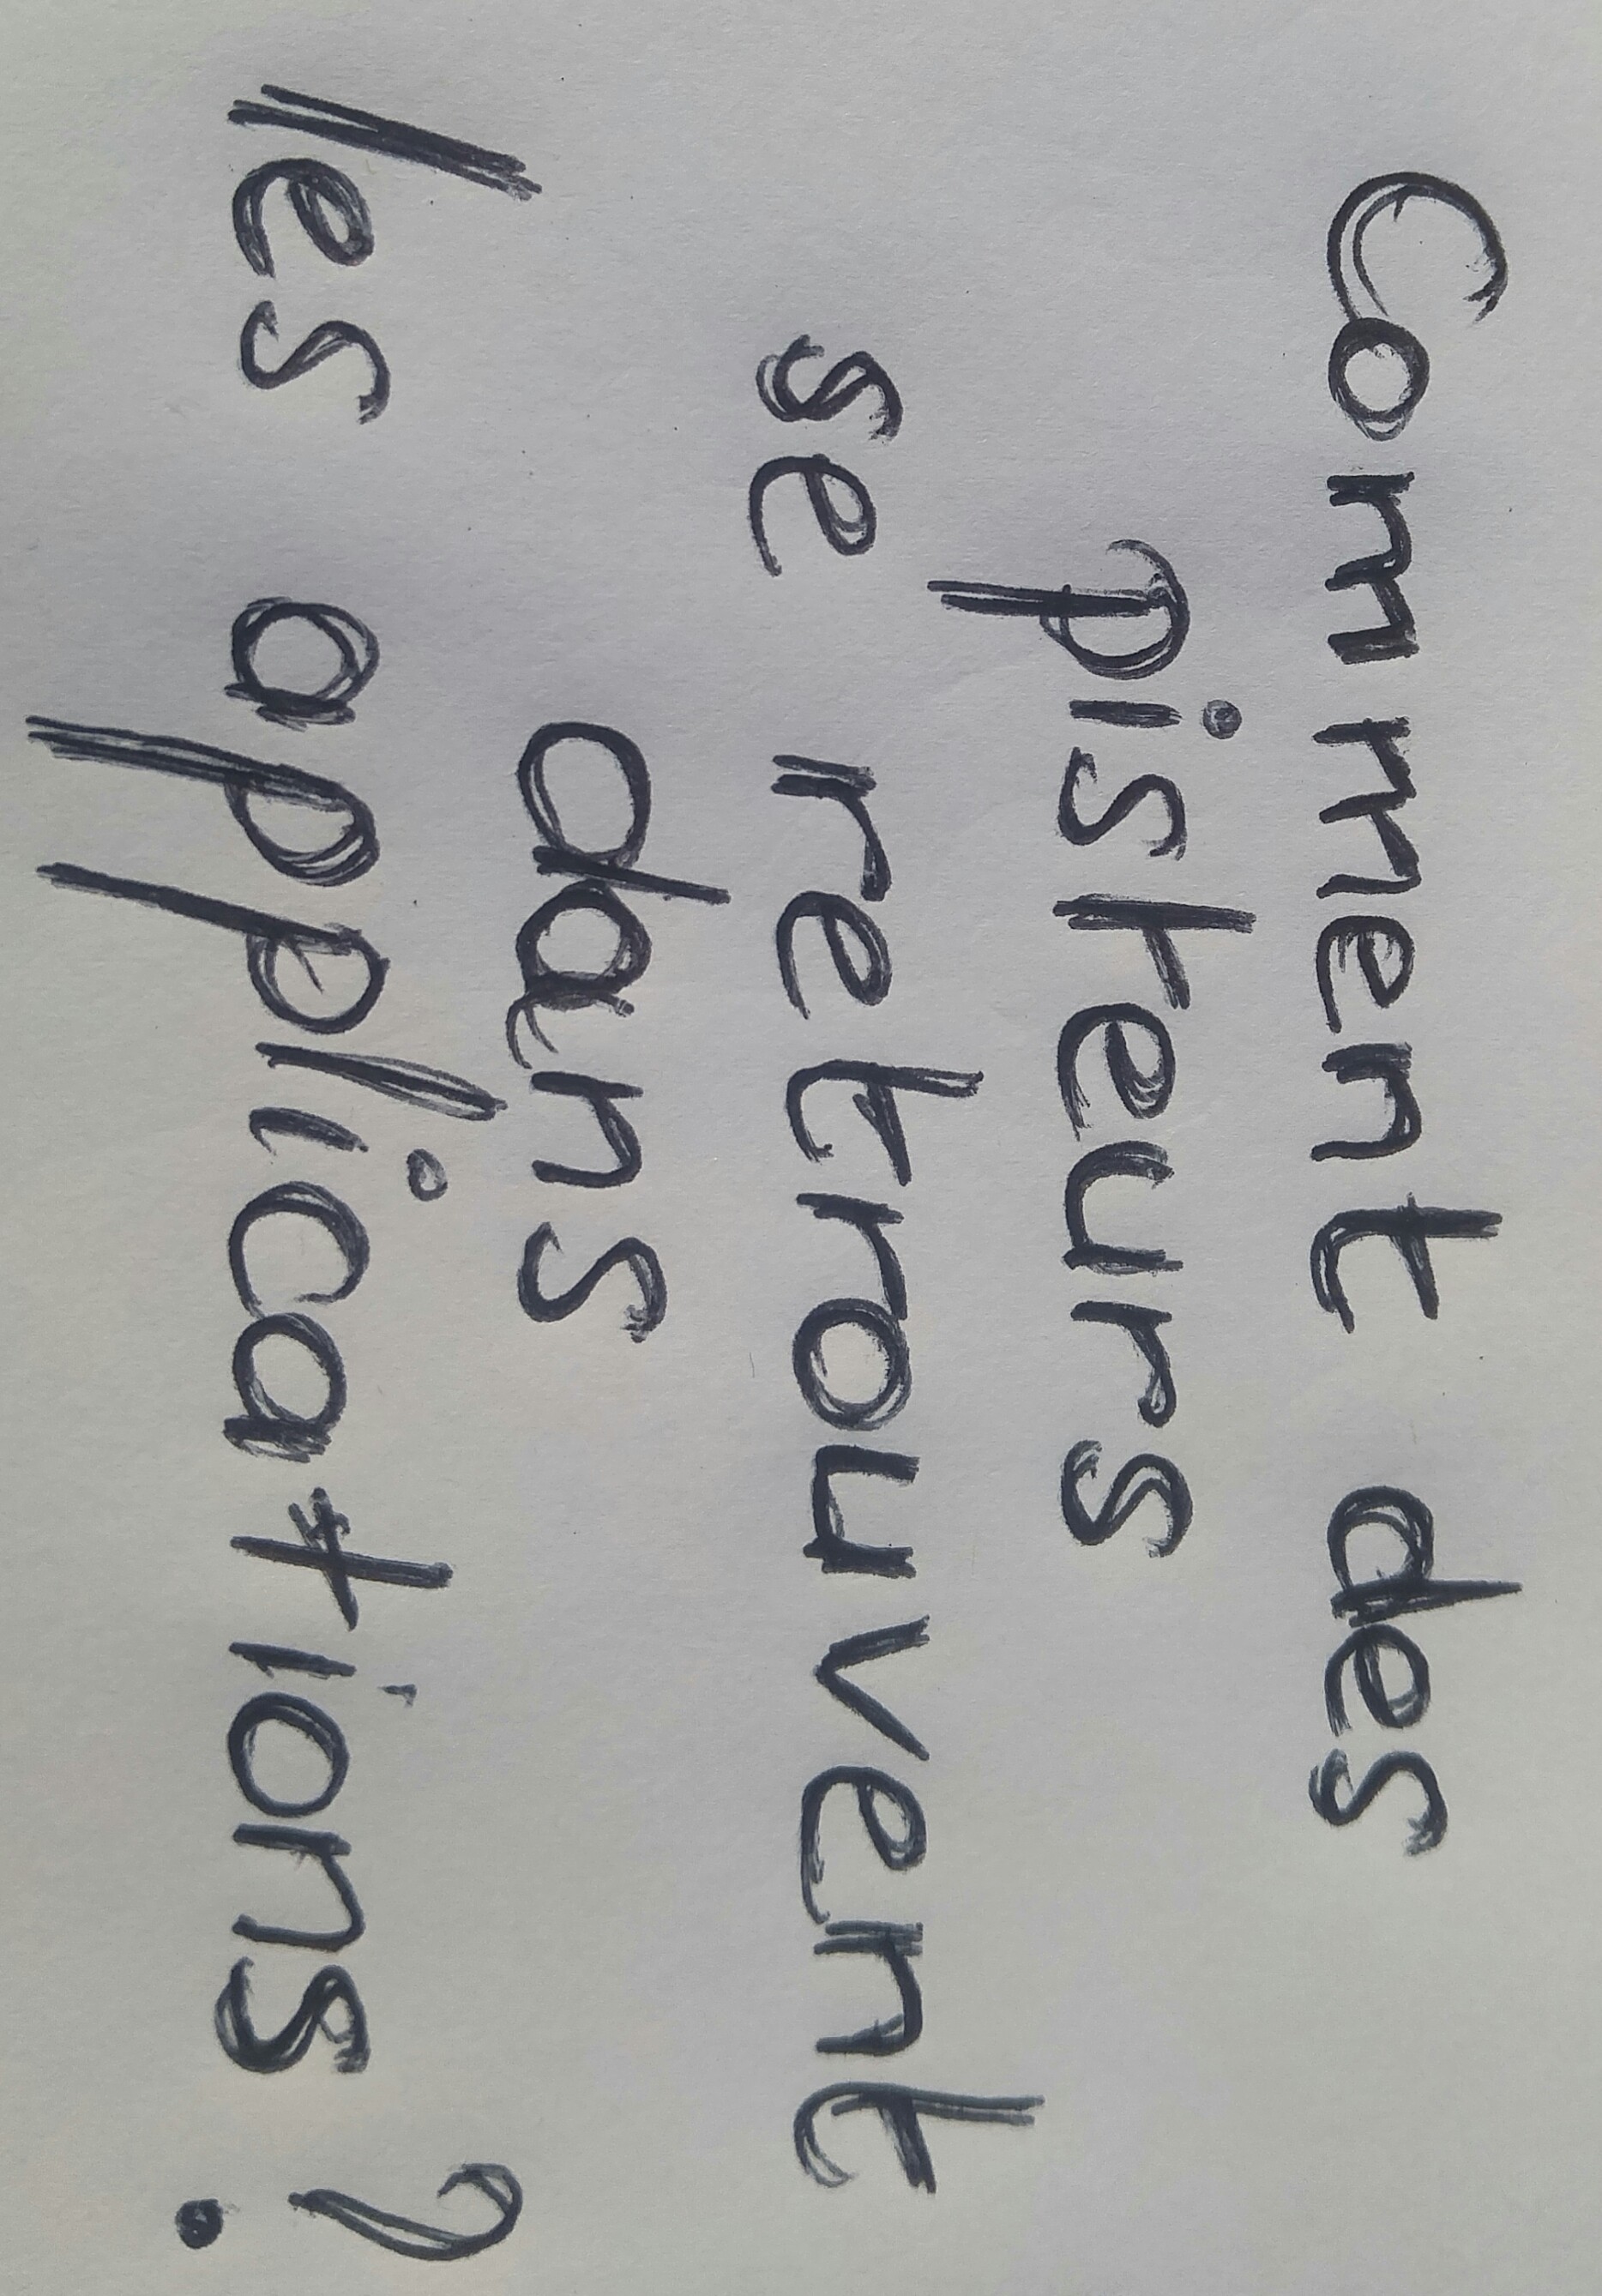 Comment des
pisteurs
se retrouvent
dans
les applications ?